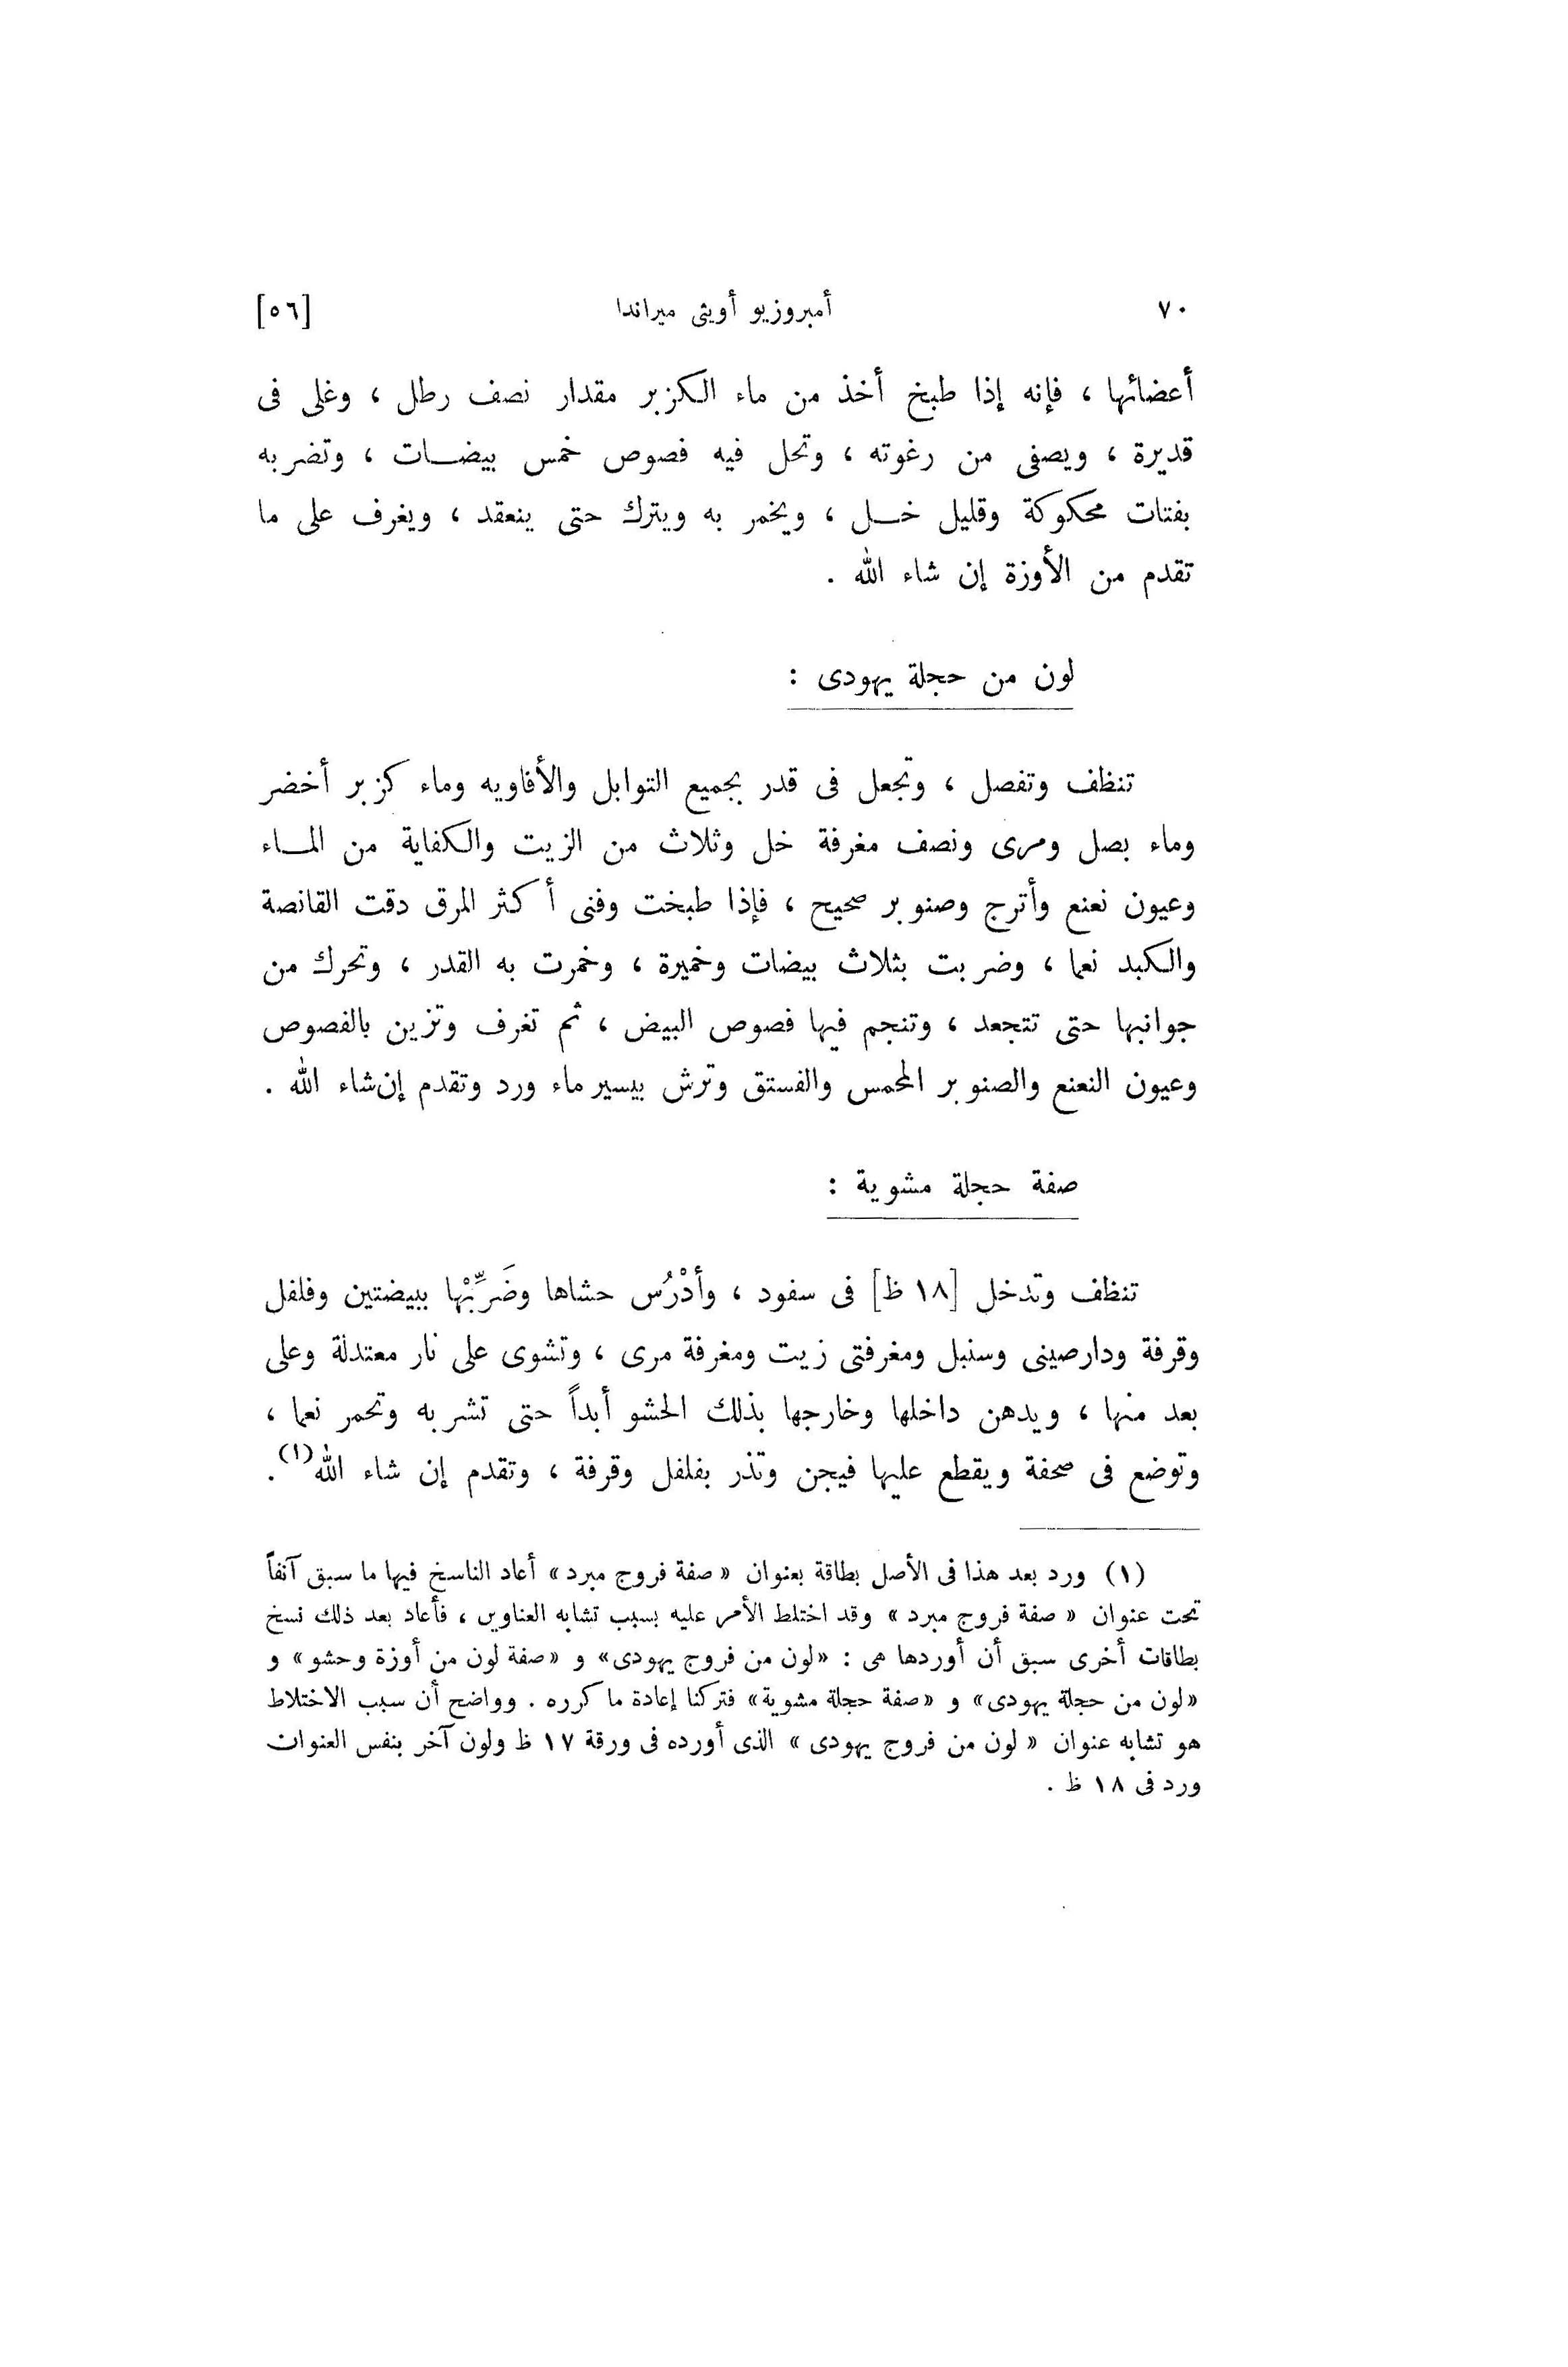 ٧٠ أمبروزيو أويثى ميراندا [٥٦]
أعضائها ، فإنه إذا طبخ أخذ من ماء الكزبر مقدار نصف رطل ، وغلى فى
قديرة ، ويصفى من رغوته ، وتحل فيه فصوص خمس بيضات ، وتضربه
بفتات محكوكة وقليل خل ، ويخمر به ويترك حتى ينعقد ، ويغرف على ما
تقدم من الأوزة إن شاء الله .
لون من حجلة يهودى :
تنظف وتفصل ، وتجعل فى قدر بجميع التوابل والأفاويه وماء كزبر أخضر
وماء بصل ومرى ونصف مغرفة خل وثلاث من الزيت والكفاية من الماء
وعيون نعنع وأترج وصنوبر صحيح ، فإذا طبخت وفنى أكثر المرق دقت القانصة
والكبد نعما ، وضربت بثلاث بيضات وخميرة ، وخمرت به القدر ، وتحرك من
جوانبها حتى تتجعد ، وتنجم فيها فصوص البيض ، ثم تغرف وتزين بالفصوص
وعيون النعنع والصنوبر المحمس والفستق وترش بيسير ماء ورد وتقدم إن شاء الله .
صفة حجلة مشوية :
تنظف وتدخل [١٨ ظ] فى سفود ، وأدْرُس حشاها وضَرِّبْها ببيضتين وفلفل
وقرفة ودارصينى وسنبل ومغرفتى زيت ومغرفة مرى ، وتشوى على نار معتدلة وعلى
بعد منها ، ويدهن داخلها وخارجها بذلك الحشو أبداً حتى تشربه وتحمر نعما ،
وتوضع فى صحفة ويقطع عليها فيجن وتذر بفلفل وقرفة ، وتقدم إن شاء الله(١).
(١) ورد بعد هذا فى الأصل بطاقة بعنوان « صفة فروج مبرد » أعاد الناسخ فيها ما سبق آنفاً
تحت عنوان « صفة فروج مبرد » وقد اختلط الأمر عليه بسبب تشابه العناوين ، فأعاد بعد ذلك نسخ
بطاقات أخرى سبق أن أوردها هى : «لون من فروج يهودى» و «صفة لون من أوزة وحشو» و
«لون من حجلة يهودى» و «صفة حجلة مشوية» فتركنا إعادة ما كرره . وواضح أن سبب الاختلاط
هو تشابه عنوان « لون من فروج يهودى » الذى أورده فى ورقة ١٧ ظ ولون آخر بنفس العنوان
ورد فى ١٨ ظ .